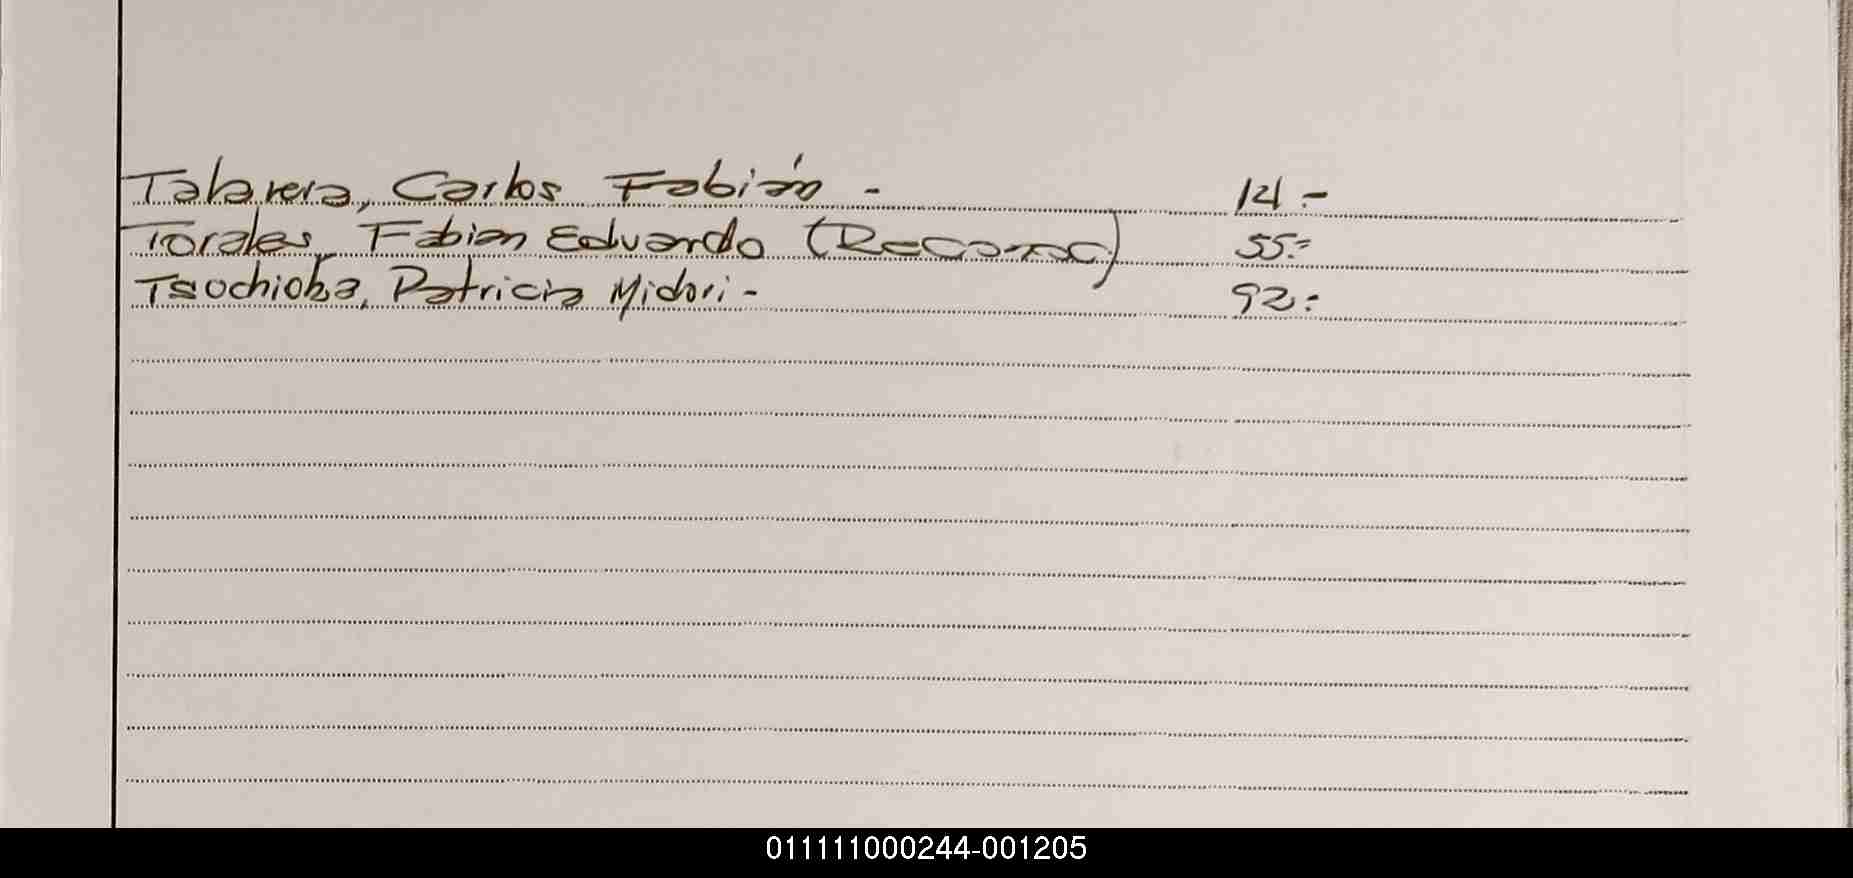 Talavera, Carlos Fabián - 14.-
Torales, Fabian Eduardo (Reconoc) 55.-
Tsuchioka, Patricia Midori - 92.-
011111000244-001205